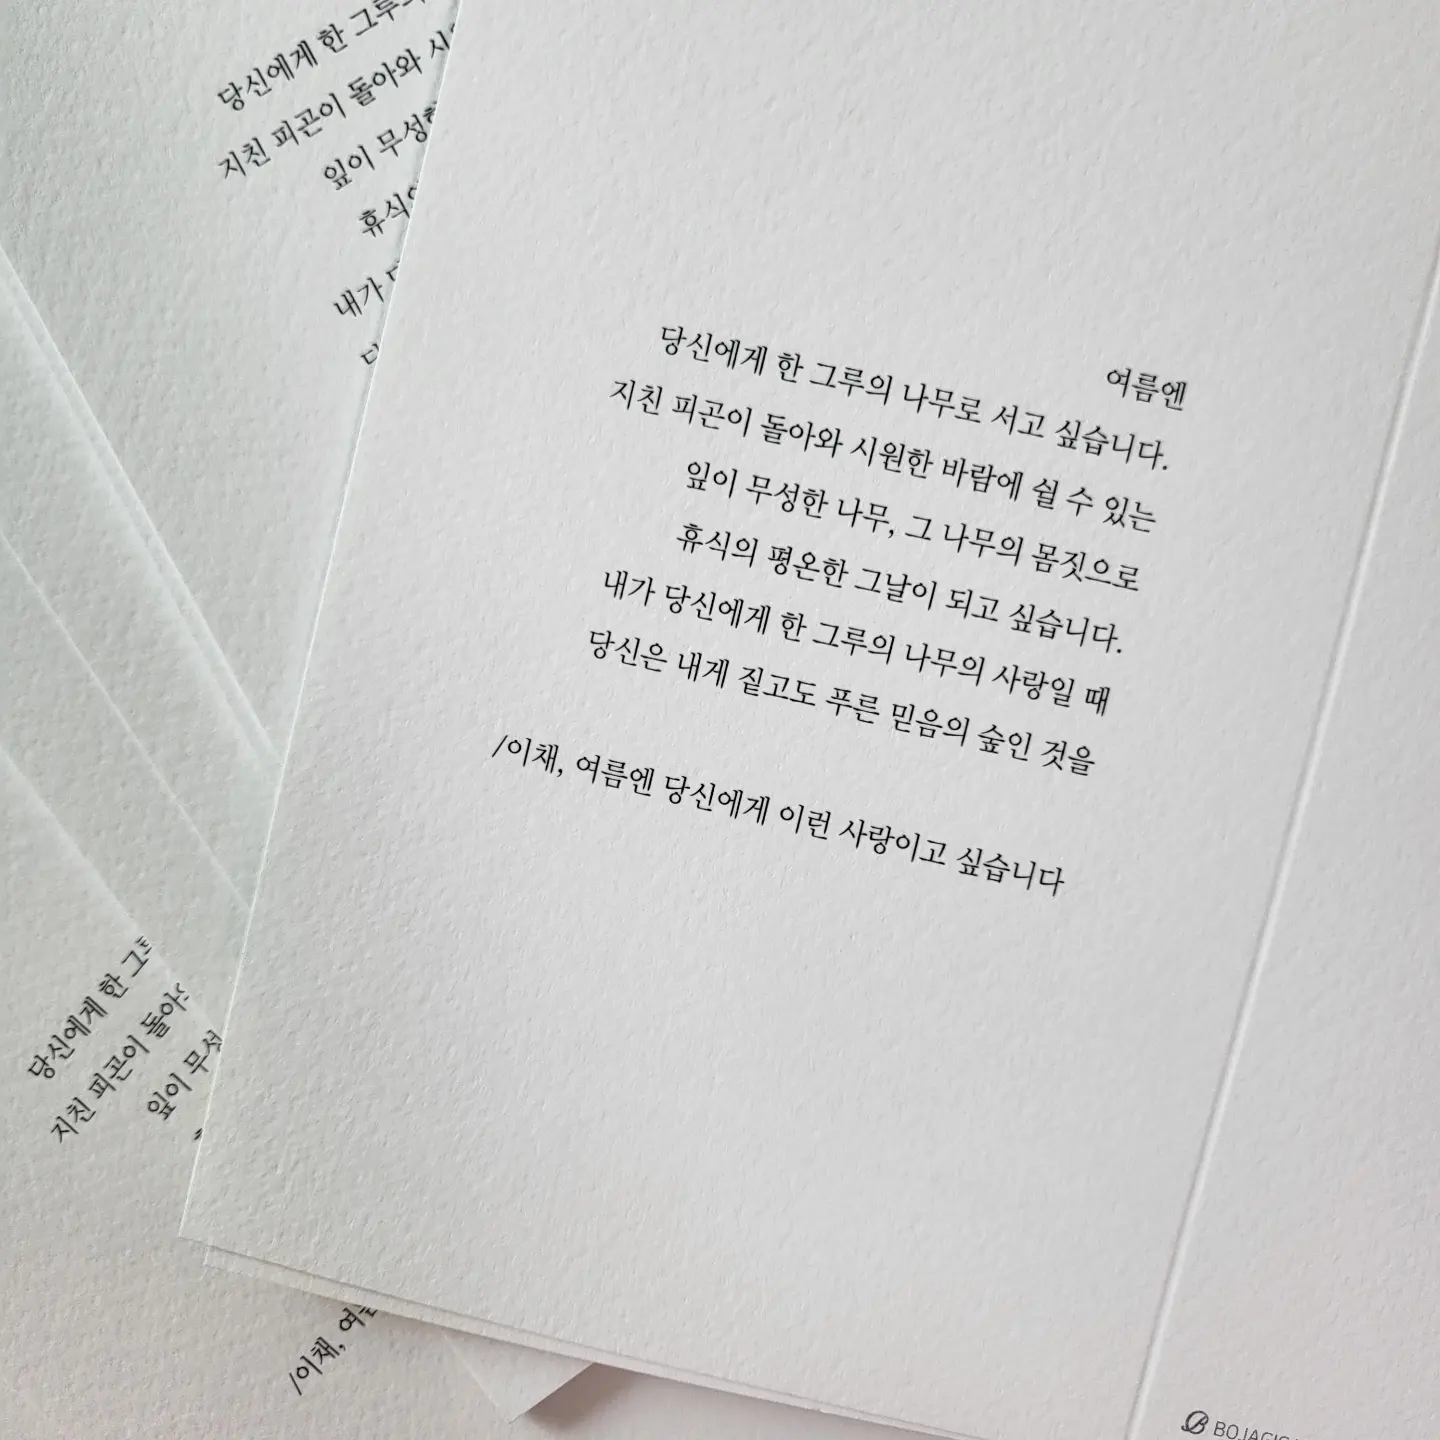 여름엔
당신에게 한 그루의 나무로 서고 싶습니다.
지친 피곤이 돌아와 시원한 바람에 쉴 수 있는
잎이 무성한 나무, 그 나무의 몸짓으로
휴식의 평온한 그날이 되고 싶습니다.
내가 당신에게 한 그루의 나무의 사랑일 때
당신은 내게 짙고도 푸른 믿음의 숲인 것을
/이채, 여름엔 당신에게 이런 사랑이고 싶습니다
당신에게 한
지친 피곤이 돌아와
잎이
내가
당신에게 한
지친 피곤이
잎이
/이채,